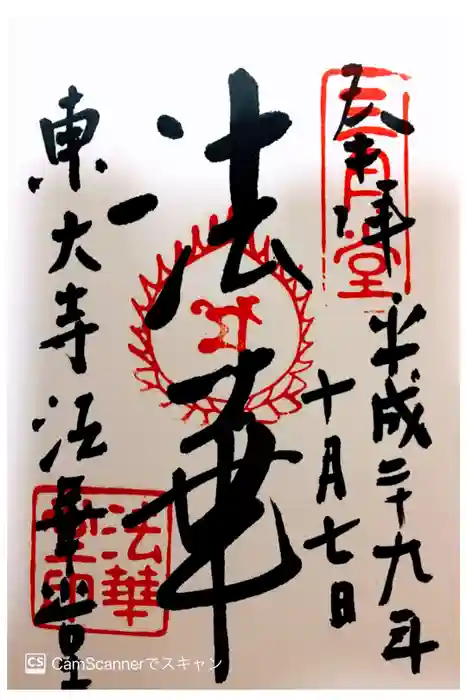 奉拝
平成二十九年
十月七日
法華
東大寺法華堂
三月堂
法華堂印
CS CamScannerでスキャン